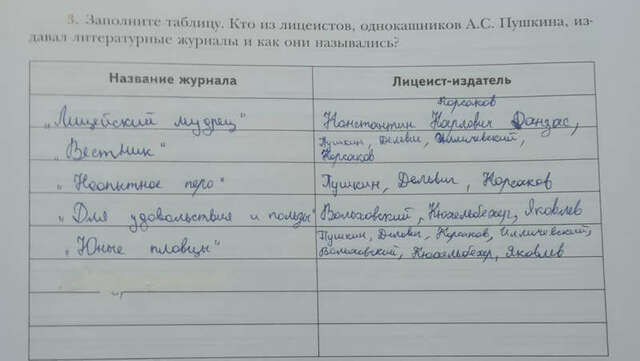 3. Заполните таблицу. Кто из лицеистов, однокашников А.С. Пушкина, из-
давал литературные журналы и как они назывались?
Название журнала
Лицеист-издатель
Корсаков
„Лицейский мудрец"
Константин Карлович Данзас,
„Вестник"
Пушкин, Дельвиг, Илличевский,
Корсаков
„Неопытное перо"
Пушкин, Дельвиг, Корсаков
„Для удовольствия и пользы"
Вольховский, Кюхельбекер, Яковлев
„Юные пловцы"
Пушкин, Дельвиг, Корсаков, Илличевский,
Вольховский, Кюхельбекер, Яковлев